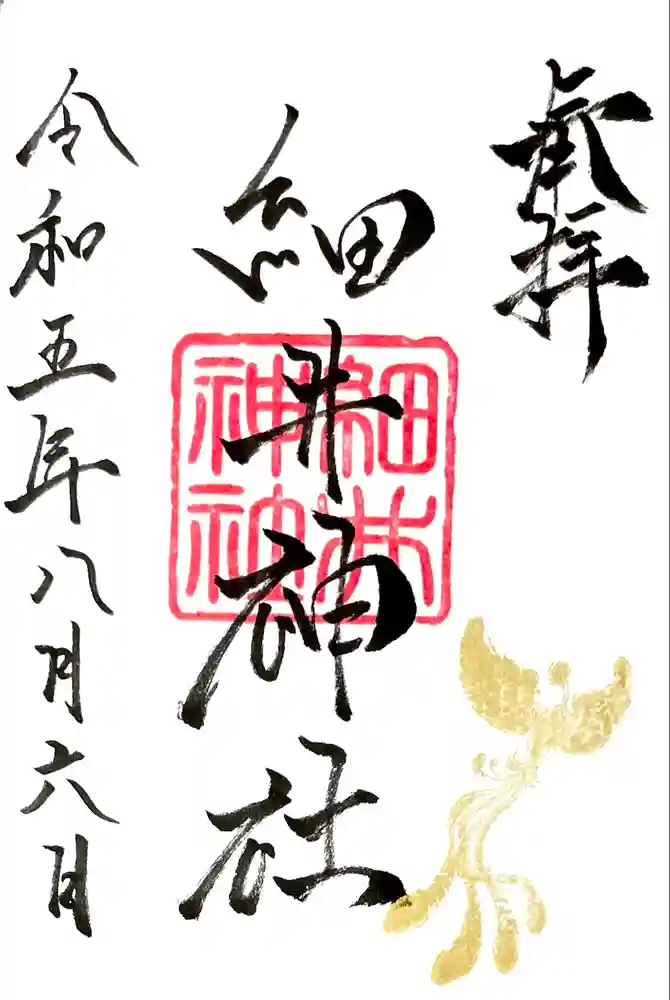 奉拝
細井神社
細井
神社
令和五年八月六日